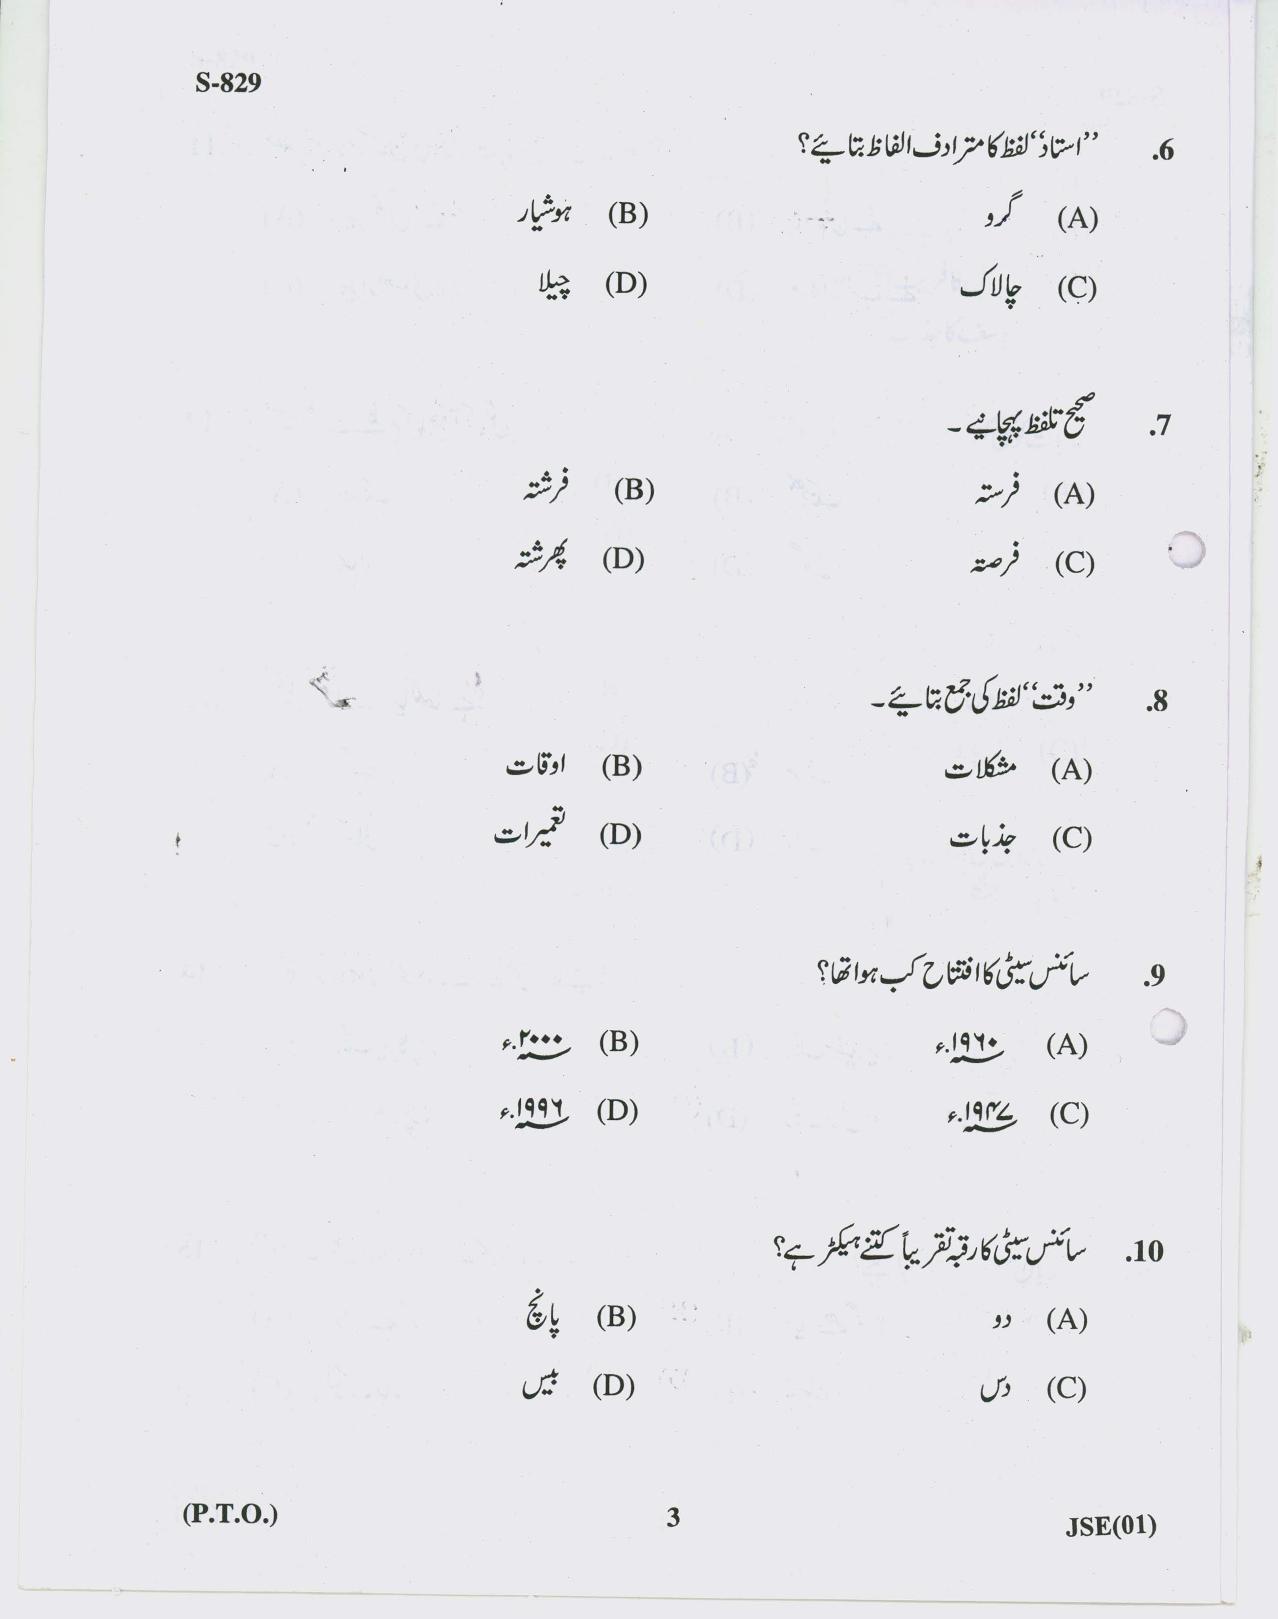 S-829
6. ”استاد“ لفظ کا مترادف الفاظ بتایئے؟
(A) گرو (B) ہوشیار
(C) چالاک (D) چیلا
7. صحیح تلفظ پہچانیے ۔
(A) فرستہ (B) فرشتہ
(C) فرصتہ (D) پھرشتہ
8. ”وقت“ لفظ کی جمع بتایئے ۔
(A) مشکلات (B) اوقات
(C) جذبات (D) تعمیرات
9. سائنس سیٹی کا افتتاح کب ہوا تھا؟
(A) ؁۱۹۶۰ء (B) ؁۲۰۰۰ء
(C) ؁۱۹۴۷ء (D) ؁۱۹۹۶ء
10. سائنس سیٹی کا رقبہ تقریباً کتنے ہیکٹر ہے؟
(A) دو (B) پانچ
(C) دس (D) بیس
(P.T.O.) 3 JSE(01)